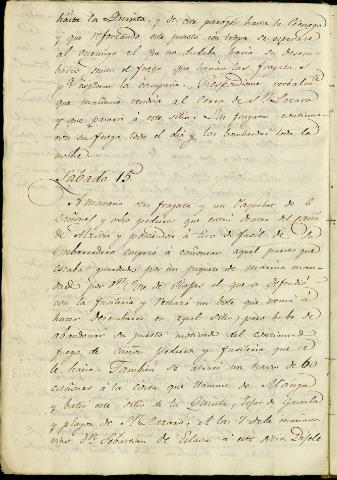 hasta la Quinta, y de este parage hasta la Cienega
y que reforzando este puesto con tropa se esperase
al enemigo el qe no dudaba haria su desem-
barco segun el fuego que hacian las fragatas
pa explorar la campaña. Respondiome verbalmte
que mañana vendria al Cerro de Sn Lazaro
y que pasaria á este sitio. Las fragatas continua-
ron su fuego todo el dia y las bombardas toda la
noche.
Sabado 15.
Amanecio otra fragata y un Paquebot de 6
cañones y ocho pedreros que entró dentro del caño
de Alcivia y poniendose à tiro de fusil de el
Embarcadero empezo à cañonear aquel puesto que
estaba guardado por un piquete de marina man-
dado por Dn Jose de Rojas el que se defendió
con la fusileria y rechazó un bote que venia á
hacer desembarco en aquel sitio; pero hubo de
abandonar su puesto motivado del continuado
fuego de cañon pedrero y fusileria que se
le hacia. Tambien se atracó un navio de 60
cañones á la costa que llaman de Manga
y batió este sitio de la Quinta, tejar de Gavala
y playon de Sn Lazaro. A las 7 de la mañana
vino Dn Sebastian de Eslava á este sitio Dijele